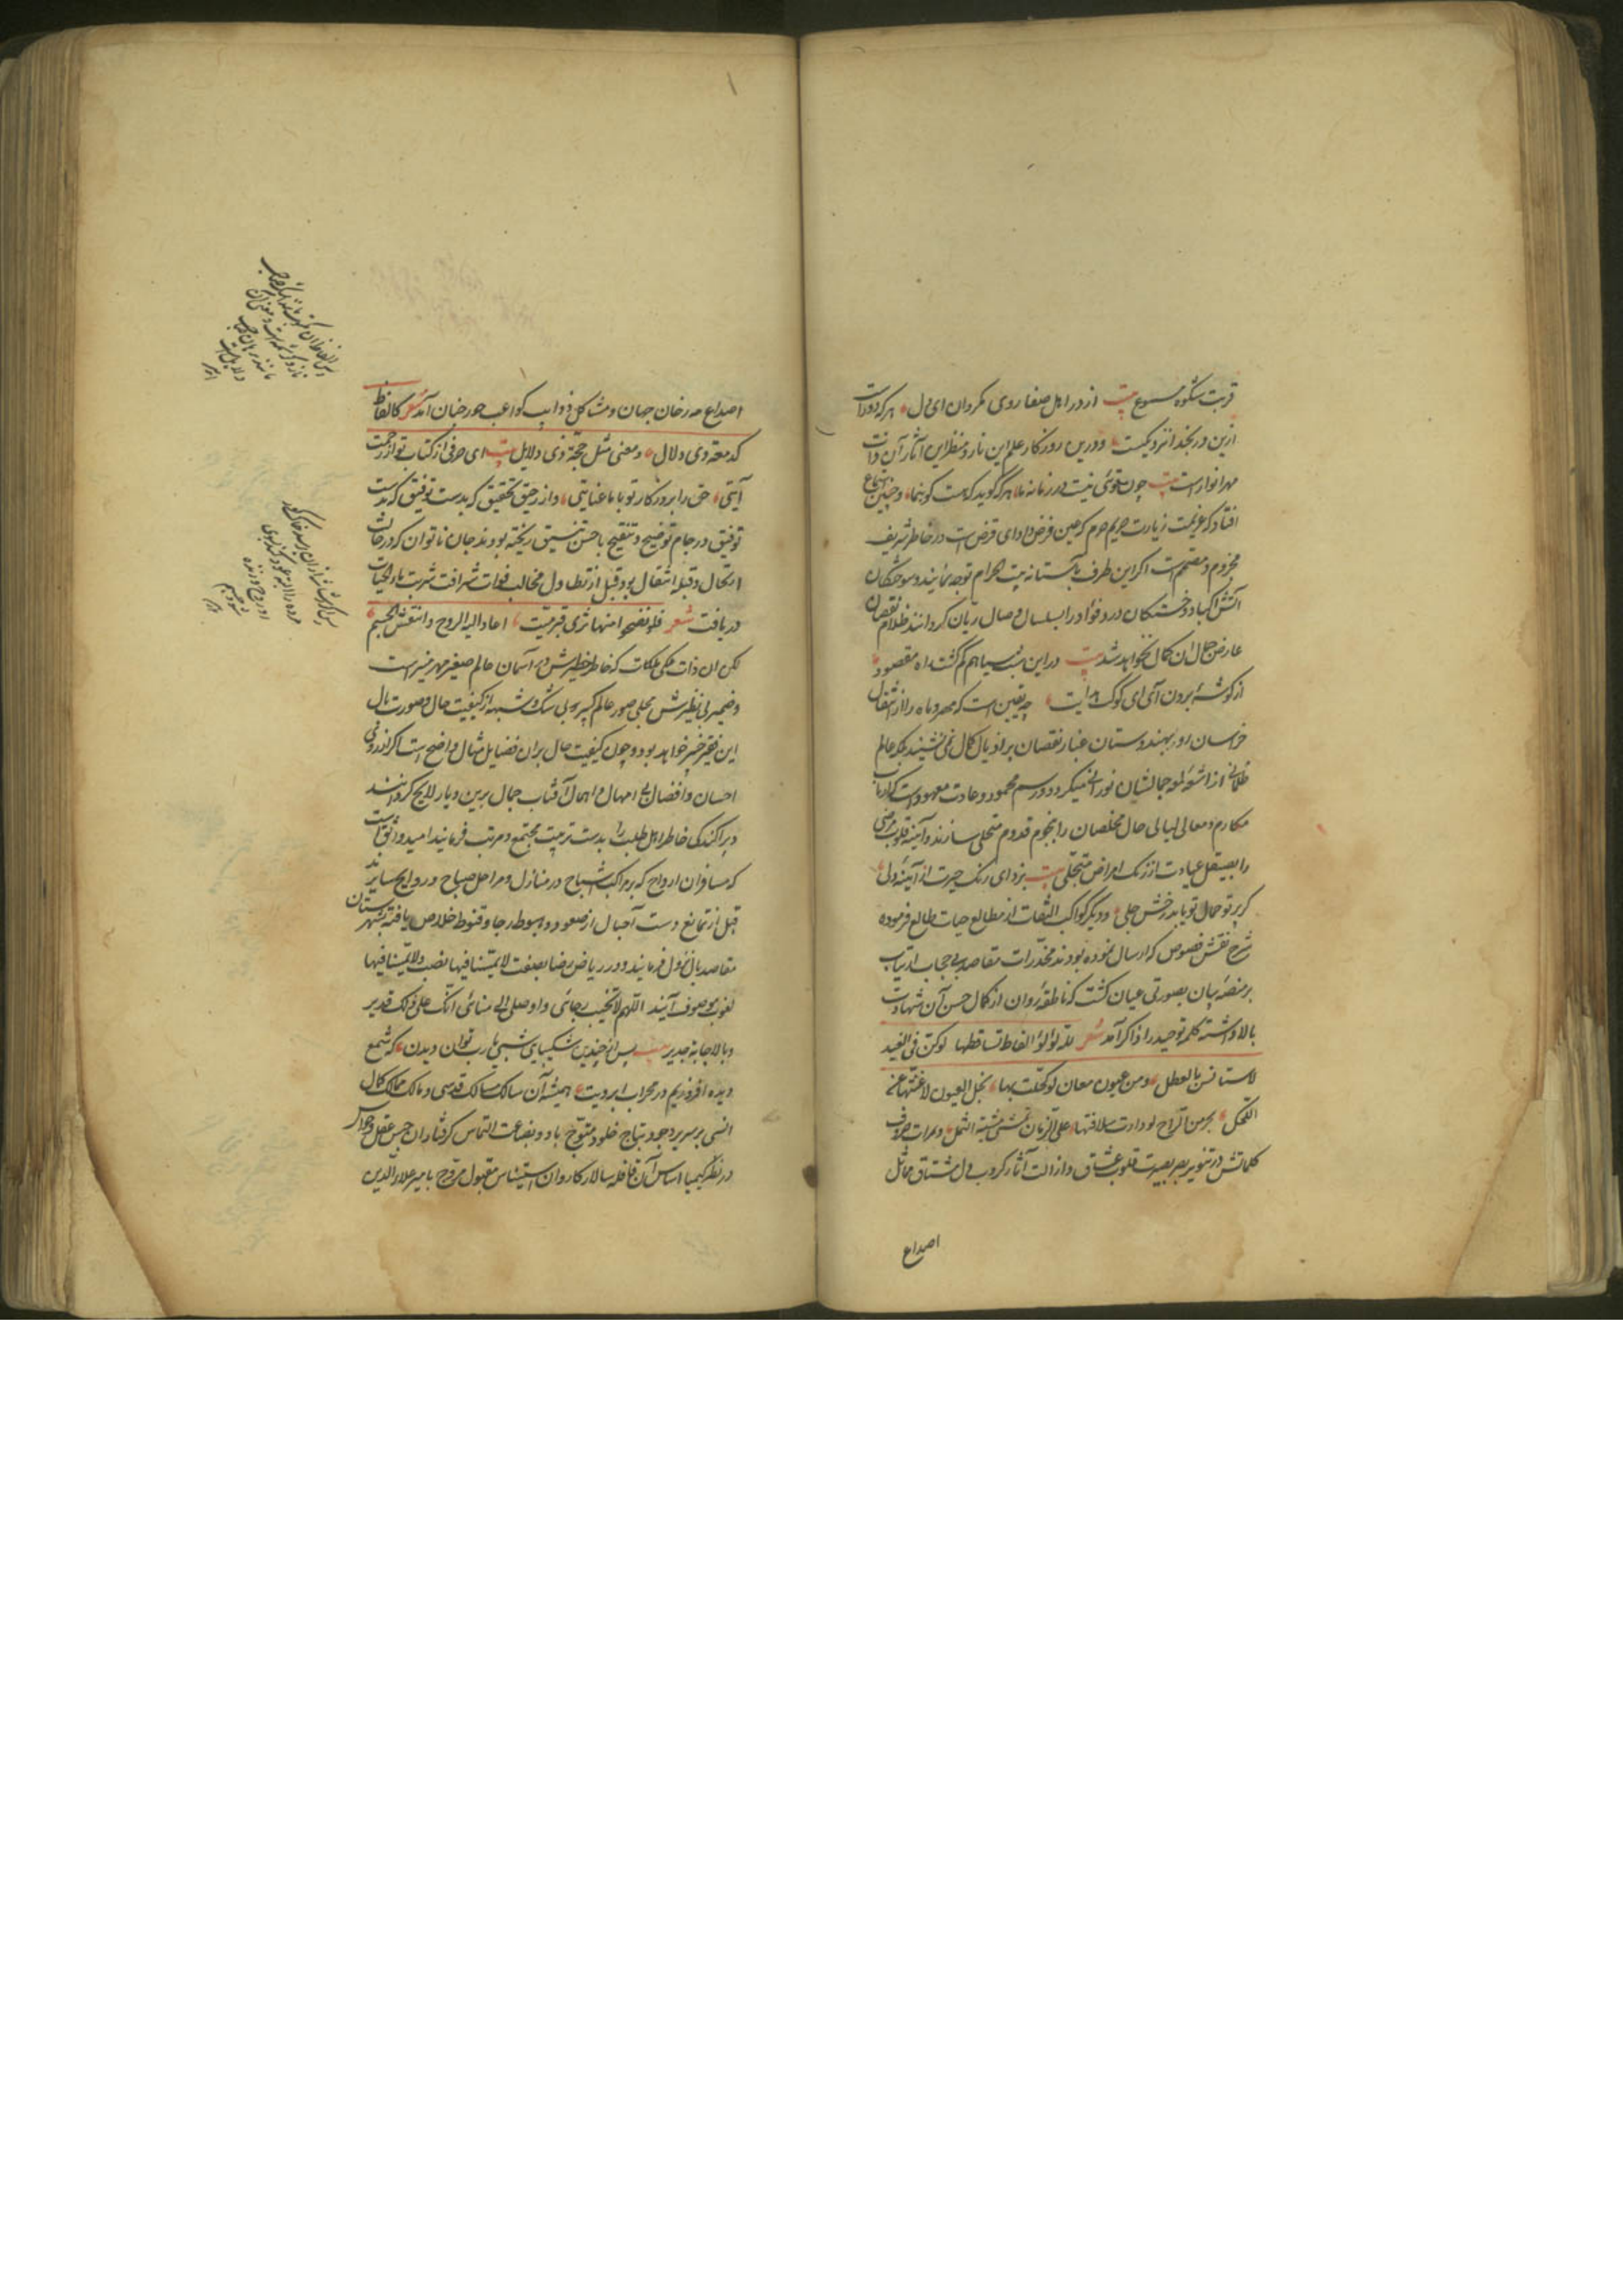 قربت شکوه مسموع بیت از در اهل صفا روی مگردان ای دل هر که دورست
ازین در بخدا نزدیکست و درین روزکار علم این نار و منظر این آثار آن ذات
مهر انوار است بیت چون تو کوئی نیست در زمانه ما هر که گوید که هست کو بنما و چنین استماع
افتاد که عزیمت زیارت حریم حرم که عین فرض و ادای قرض است در خاطر شریف
مجزوم و مصمم است اگر این طرف بآستانه بیت الحرام توجه نمایند و سوختکان
آتش اکباد و خستکان درد فؤاد را بسلسال وصال ریان کردانند ظلام نقصان
عارض جمال آن کمال نخواهد شد بیت در این شب سیاهم کم کشت راه مقصود
از کوشهٔ برون آی ای کوکب هدایت چه یقین است که مهر و ماه را از انتقال
خراسان و هندوستان غبار نقصان بر اذیال کمال نمی نشیند بلکه عالم
ظلمانی از اشعه لوامع جمالشان نورانی میکردد و رسم محمود و عادت معهود است که ارباب
مکارم و معالی لیالی حال مخلصان را بنجوم قدوم متحلی سازند و آیینه قلوب مرضی
را بصیقل عیادت از زنک امراض متجلی بیت بزدای زنک حیرت از آیینهٔ دلی
کز پرتو جمال تو یابد رخش جلی و دیگر کواکب التفات از مطالع حیات طالع فرموده
شرح نقش فصوص که ارسال نموده بودند مخدرات مقاصد بی حجاب ارتیاب
بر منصهٔ بیان بصورتی عیان کشت که ناطقهٔ روان از کمال حسن آن شهادت
بالا داشته کلمه توحید را ذاکر آمد شعر لله لؤلؤ الفاظ تساقطها لو کن فی الغید
لاستانسن بالعطل ومن عیون معان لو کحلت بها نجل العیون لاغنتها عن
الکحل سحر من الراح لو دارت سلافتها علی الزمان تمشی مشیة الثمل و مرات حروف
کلماتش در تنویر بصر بصیرت قلوب عشاق و ازالت آثار کروب دل مشتاق مماثل
اصداع
اصداع مه رخان جهان و مشاکل ذوایب کواعب حور خنان آمد شعر کالفاظ
کدمعة ذی دلال و معنی مثل حجة ذی دلایل بیت ای حرفی از کتاب تو از رحمت
آیتی حق را بروزکار تو با ما عنایتی و از رحیق تحقیق که بدست توفیق
توفیق در جام توضیح و تنقیح باحسن تنسیق ریخته بودند جان ناتوان که در حالت
ارتحال و قبله انتقال بود قبل از تطاول مخالب فوات شرافت شربت ماء الحیات
دریافت شعر فلو نضحوا منها ثری قبر میت لعادت الیه الروح وانتعش الجسم
لکن آن ذات ملکی ملکات که خاطر خطیرش در آسمان عالم صغیر مهر منیر است
و ضمیر بی نظیرش مجلی صور عالم کبیر بی شک و شبهه از کیفیت حال و صورت بال
این فقیر خبیر خواهد بود و چون کیفیت حال بر آن فضایل مثال واضح است اکر از روی
احسان و افضال بی امهال و اهمال آفتاب جمال برین دیار لایح کردانند
و پراکندکی خاطر اهل طلب را بدست تربیت مجتمع و مرتب فرمایند امید واثق است
که مسافران ارواح که بر مراکب اشباح در منازل و مراحل صباح و رواح سایرند
قبل از تمانع دست آجال از صعود و هبوط رجا و قنوط خلاص یافته بشهرستان
مقاصد بال نزول فرمایند و در ریاض رضا بصفت لا یمسنا فیها نصب ولا یمسنا فیها
لغوب موصوف آیند اللهم لا تخیب رجائی و اوصلنی الی منائی انک علی ذلک قدیر
و بالاجابة جدیر بیت پس از چندین شکیبایی شبی یا رب توان دیدن که شمع
دیده افروزیم در محراب ابرویت همیشه آن سالک مسالک قدسی و مالک ممالک کمال
انسی بر سریر وجود بتاج خلود متوج باد و بضاعت التماس کرفتاران حبس عقل و حواس
در نظر کیمیا اساس آن قافله سالار کاروان استیناس مقبول و مروج با میر علاء الدین